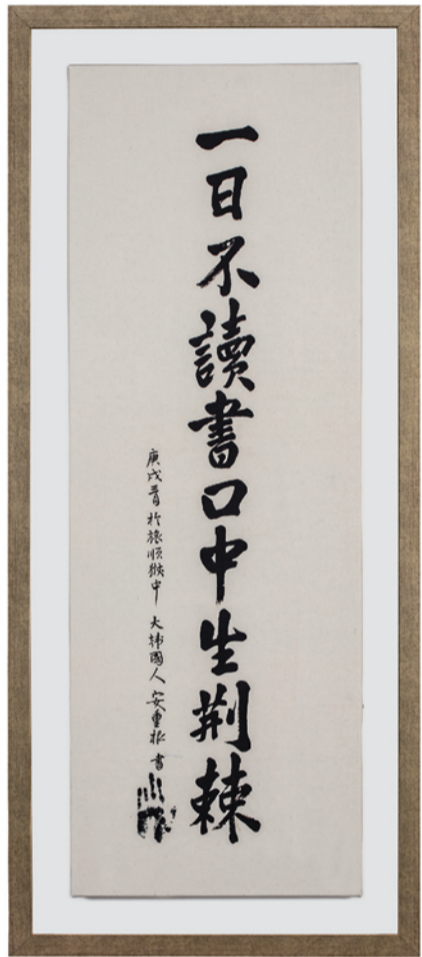 一日不讀書口中生荊棘
庚戌三月 於旅順獄中 大韓國人 安重根 書